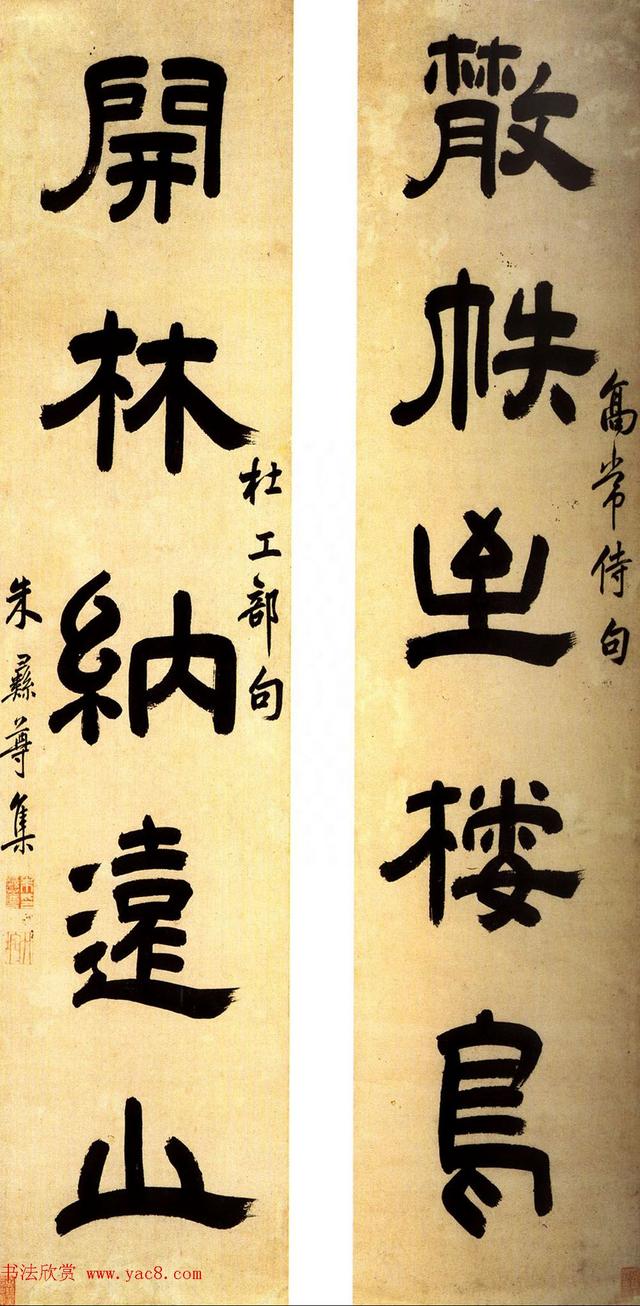 散帙至棲鳥
高常侍句
開林納遠山
杜工部句
朱彝尊集
书法欣赏 www.yac8.com